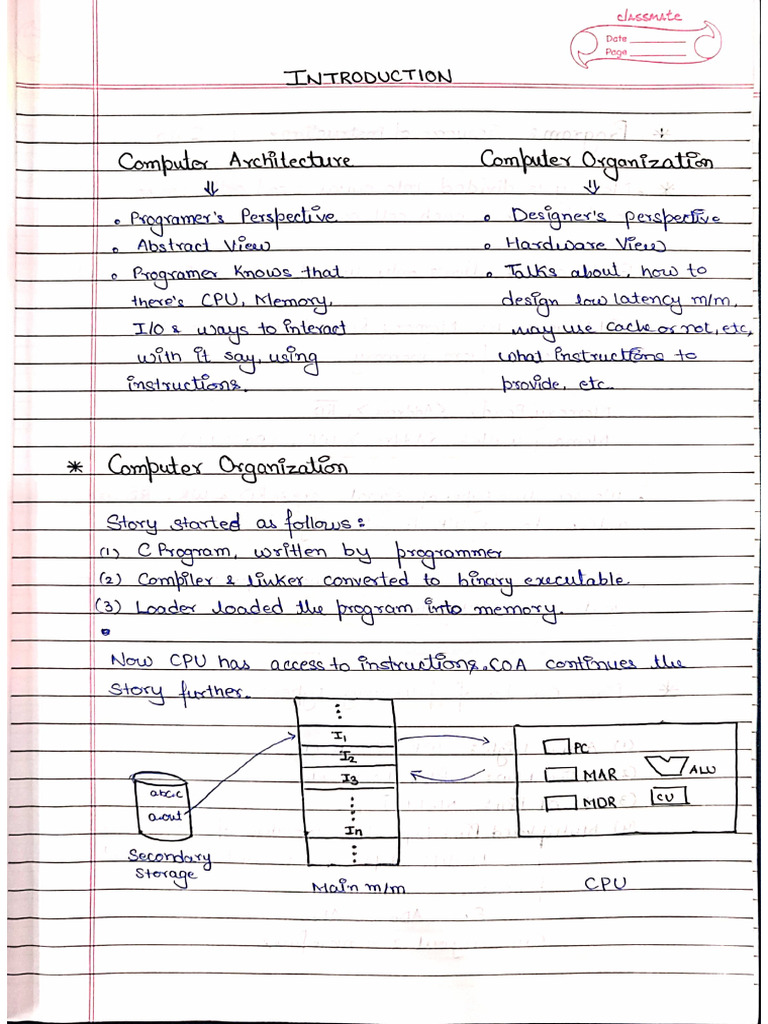 classmate
Date
Page
INTRODUCTION
Computer Architecture
⇓
• Programer's Perspective
• Abstract View
• Programer knows that
there's CPU, Memory,
I/O & ways to interact
with it say, using
instructions.
Computer Organization
⇓
• Designer's perspective
• Hardware View
• Talks about, how to
design low latency m/m,
may use cache or not, etc,
what instructions to
provide, etc..
* Computer Organization
Story started as follows:
(1) C Program, written by programmer
(2) Compiler & linker converted to binary executable
(3) Loader loaded the program into memory.
•
Now CPU has access to instructions. COA continues the
Story further.
abc.c
a.out
Secondary
Storage
⋮
I1
I2
I3
⋮
In
⋮
Main m/m
PC
MAR
MDR
ALU
CU
CPU